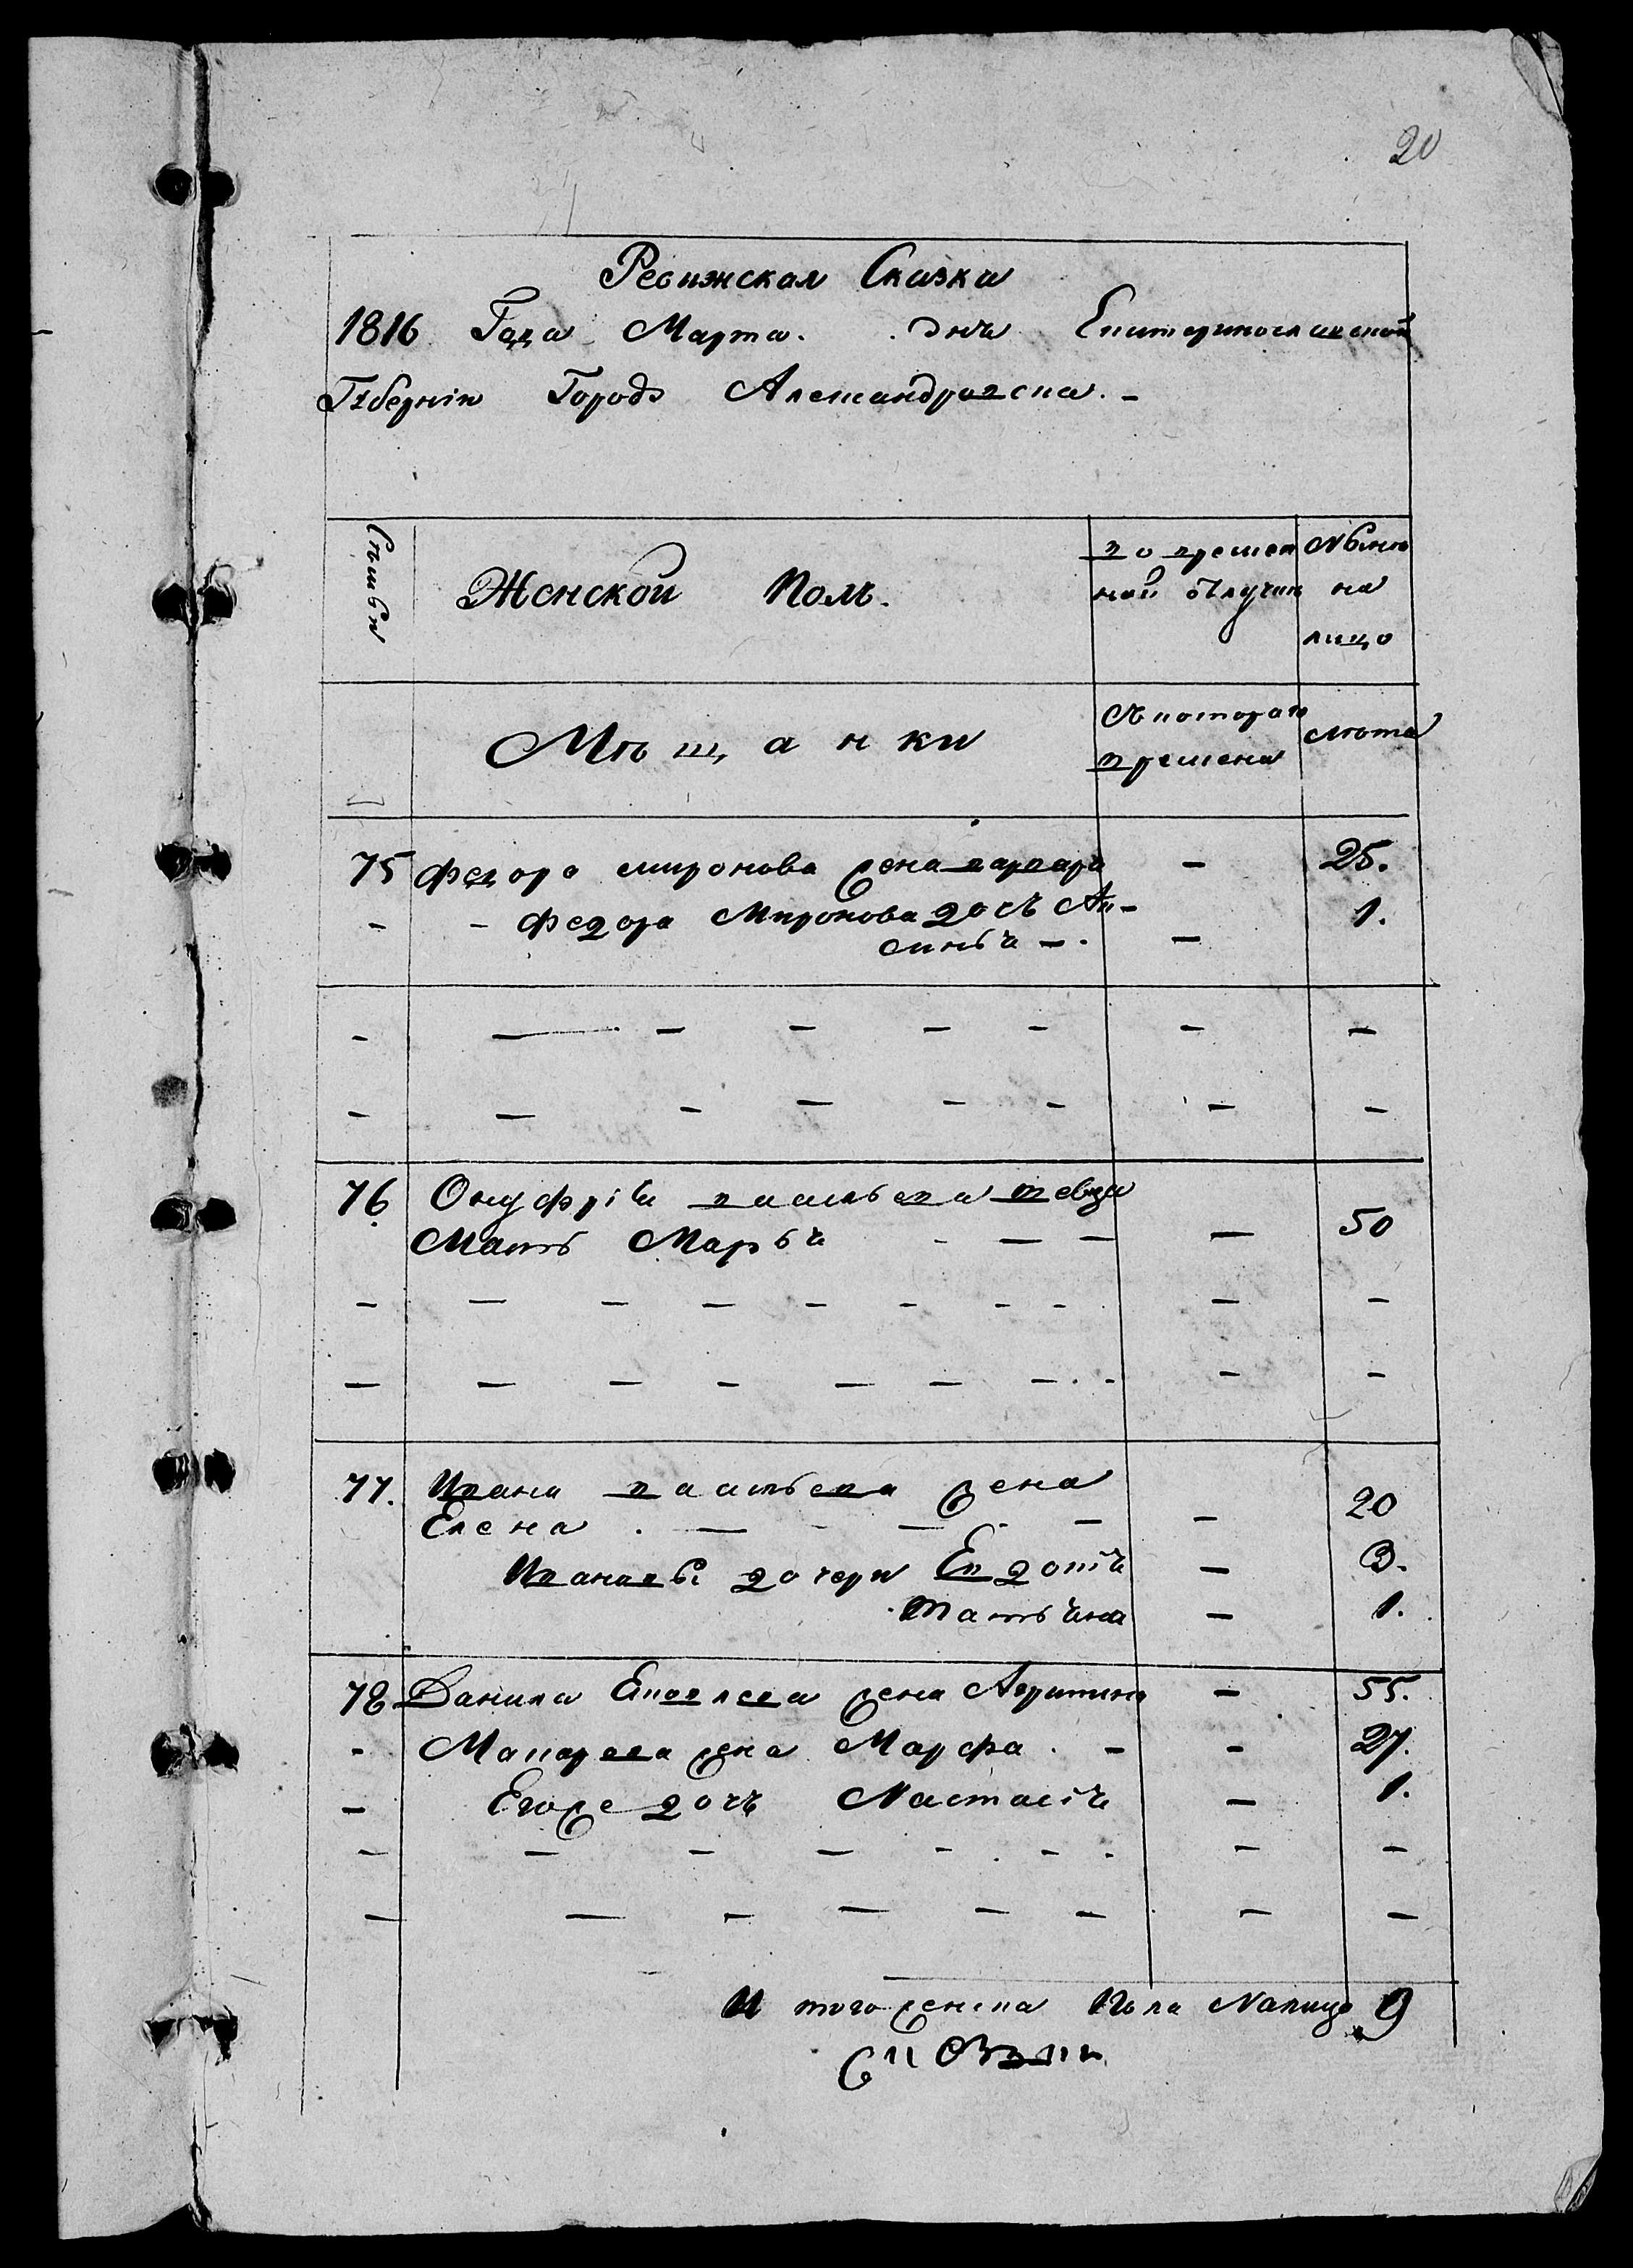 20
Ревижская Сказка
1816 Года Марта. дня Екатеринославской
Губерніи Города Александровска.
Семьи
Женской Полъ.
во времен
ной отлучки
Ныне
на
лицо
Мѣщанки
Съ котораго
времени
лѣта
75 Федора миронова жена варвара - 25.
- - Федора Миронова дочь Ак-
синья - - 1.
76 Онуфрія васильева шевца
Мать Марья - - - - 50
77. Ивана васильева жена
Елена - 20
Ивановы дочери Евдотія - 3.
Татьяна - 1.
78 Данила жена - 55.
- Макарова жена Марфа - - 27.
- дочь Настасія - 1.
И того женска Пола Налицо 9